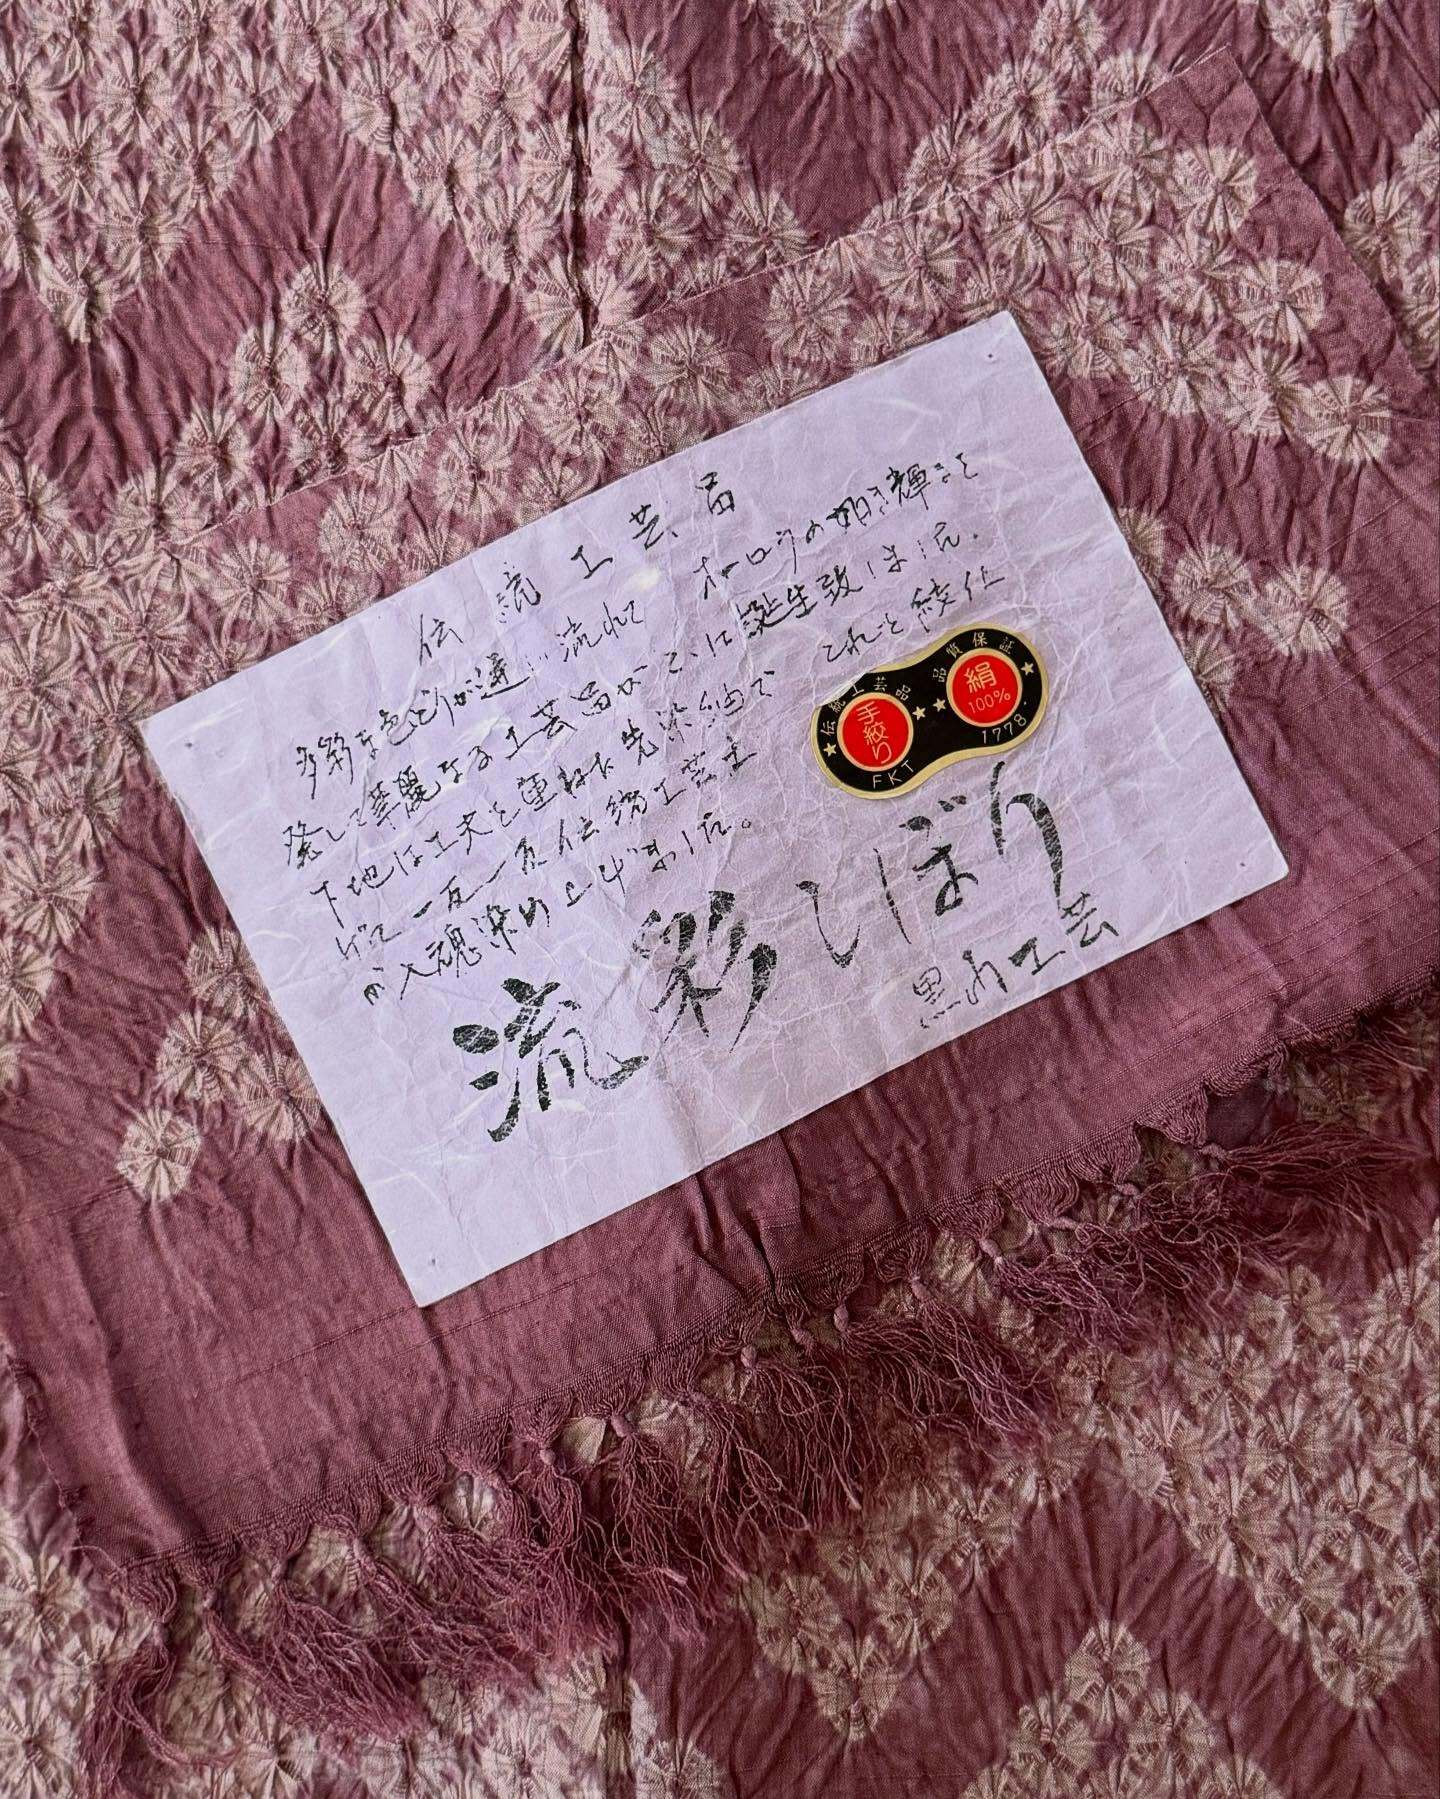 伝統工芸品
多彩な色どりが遊い流れて オーロラの如き輝きを
発して華麗なる工芸品がここに誕生致しました。
下地は工夫を重ねた先染紬で これを絞仕
げて一反一反伝統工芸士
が入魂染め上げました。
伝統工芸品 品質保証
手絞り
絹
100%
FKT
1778.
流彩しぼり
黒山工芸